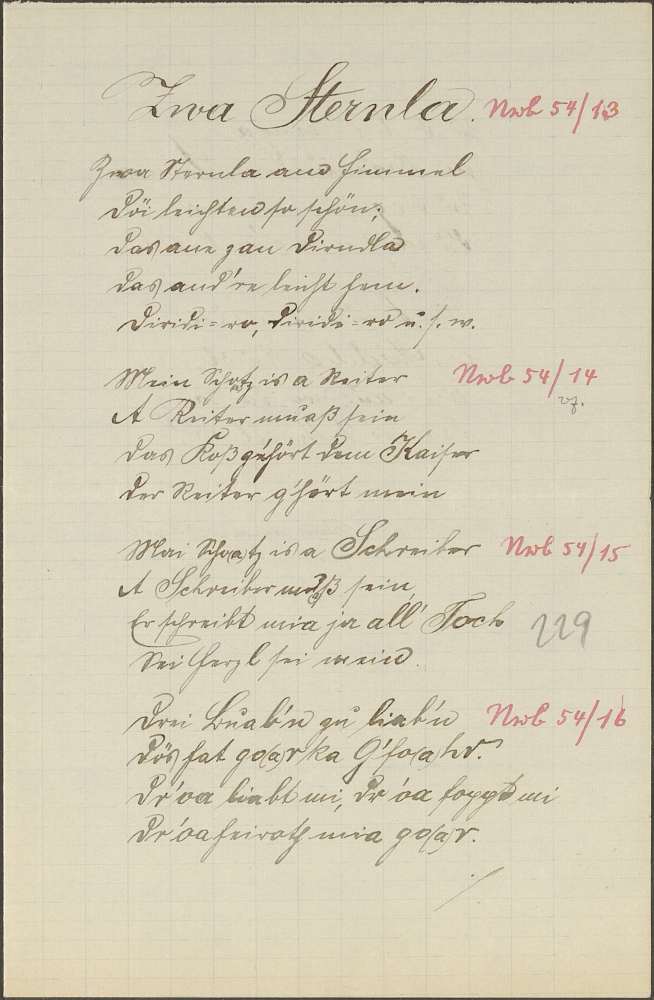 Zwa Sternla. Nwb 54/13
Zwa Sternla am Himmel
Döi leichten so schön;
Das ane zan Dirndla
Das and're leicht hem.
Diridi=ro, Diridi=ro u. s. w.
Mein Schatz is a Reiter Nwb 54/14
A Reiter muaß sein vz.
Das Roß g'hört dem Kaiser
Der Reiter g'hört mein
Mei Scho(a)tz is a Schreiber Nwb 54/15
A Schreiber muaß sein
Er schreibt mia ja all' Toch 229
Sei Herzl sei mein.
Drei Buab'n zu liab'n Nwb 54/16
Dös hat go(a)r ka G'fo(a)hr.
Dr' oa liabt mi, Dr' oa foppt mi
Dr' oa heirath mia go(a)r.
./.